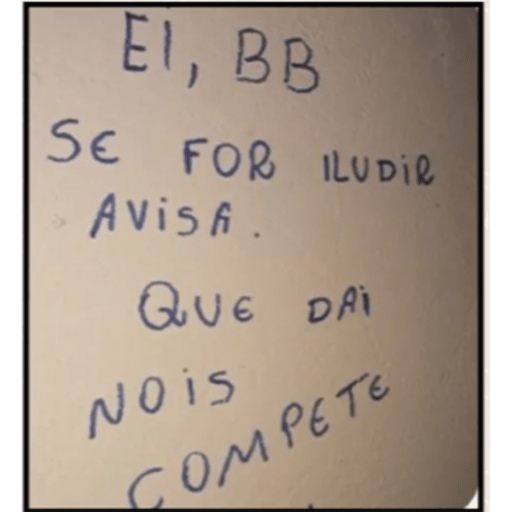 EI, BB
SE FOR ILUDIR
AVISA.
QUE DAI
NOIS
COMPETE